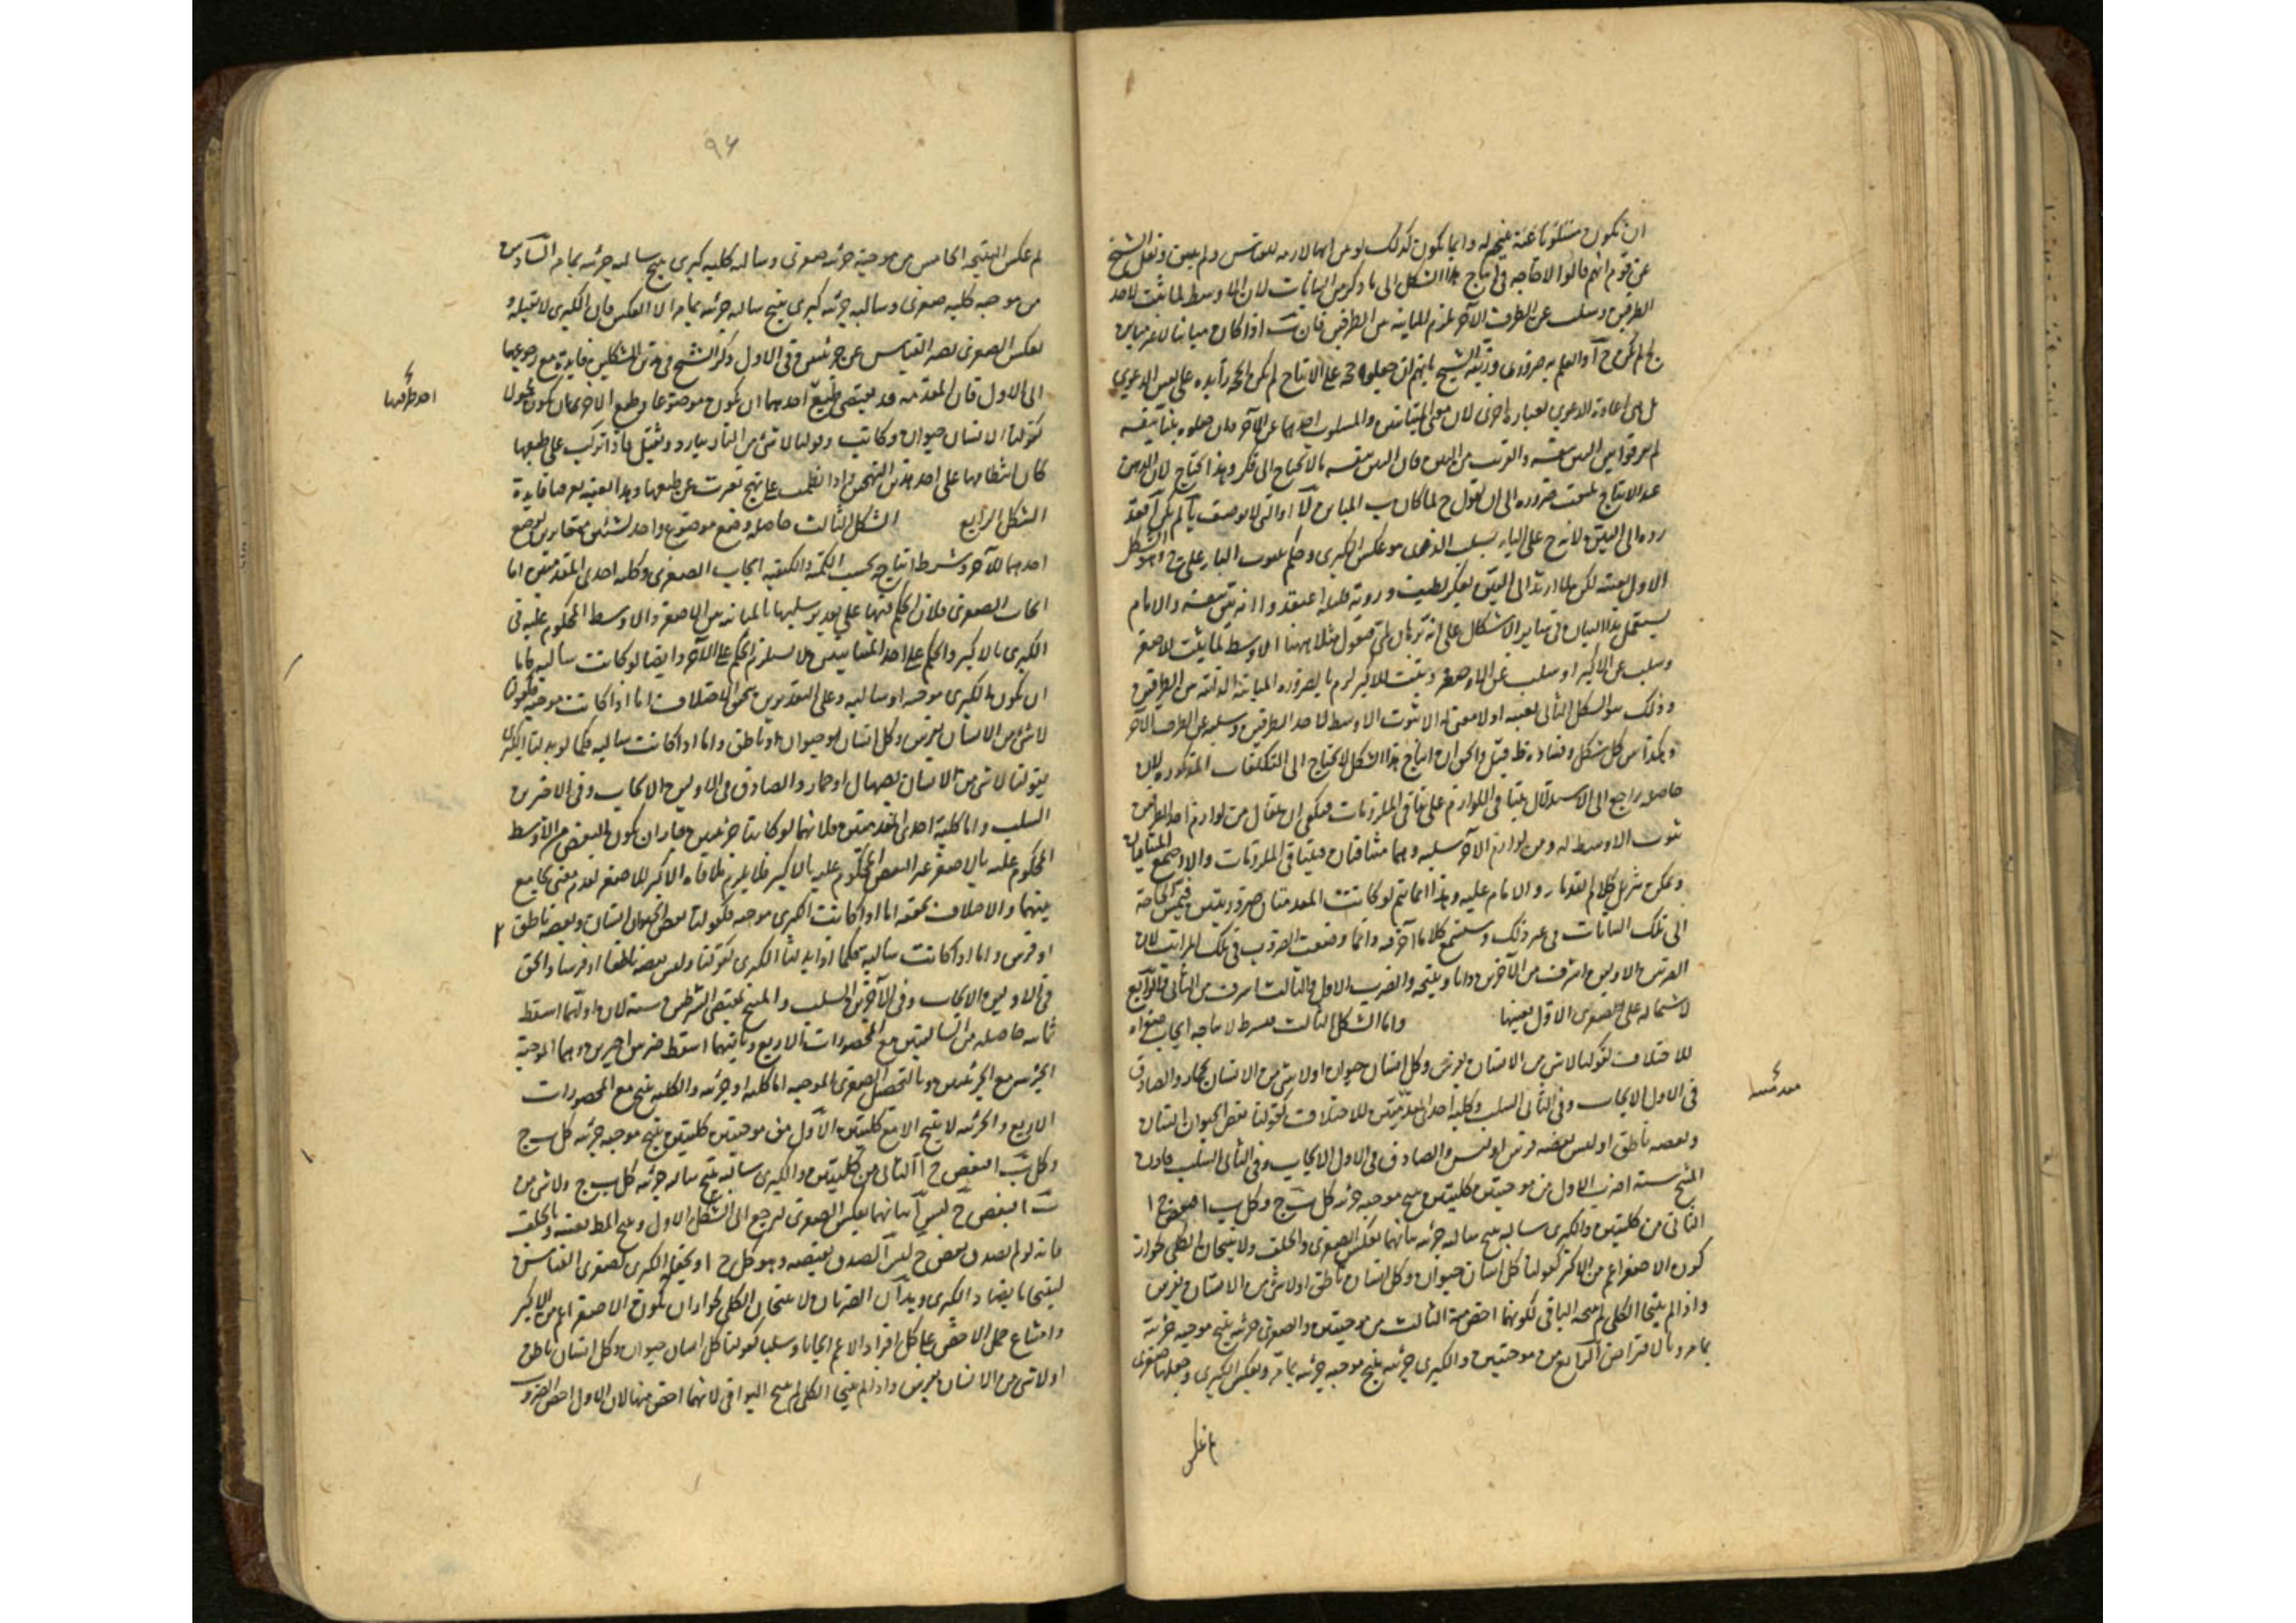 ان تكون مستلزما عنه نتيجة له وانما يكون كذلك لو من انها لازمه للقياس ولم يبين ونقل الشيخ
عن قوم انهم قالوا لا حاجه فى انتاج هذا الشكل الى ما ذكر من البيانات لان الاوسط لما ثبت لاحد
الطرفين وسلب عن الطرف الآخر لزم المباينه بين الطرفين فان ب اذا كان مباينا
ج لم يكن ج آ والعلم به ضرورى وزيفه الشيخ بانهم ان جعلوا هذا حجه على الانتاج لم يكن الحجه زائده على نفس الدعوى
بل هى اعادة الدعوى بعباره اخرى لان معنى المتباينين والمسلوب احدهما عن الآخر وان جعلوه بينا بنفسه
لم يفرقوا بين البين بنفسه والقريب من البين فان البين بنفسه ما لا يحتاج الى فكر وهذا يحتاج لان الذهن
عند الانتاج يلتفت ضروره الى ان يقول ج لما كان ب المباين لآ او التى لا توصف بآ لم يكن آ فقد
رده الى البين لانه ح على الباء بسلب الذى هو عكس الكبرى وحكم بثبوت الباء على ج وهو الشكل
الاول بعينه لكن لما ارتد الى البين بفكر لطيف وروية قليله اعتقدوا انه بين بنفسه والامام
يستعمل هذا البيان فى سائر الاشكال على انه برهان لمى فيقول مثلا ههنا الاوسط لما يثبت للاصغر
وسلب عن الاكبر او سلب عن الاصغر ويثبت للاكبر لزم بالضروره المباينة الذاتية بين الطرفين
وذلك هو الشكل الثانى بعينه اذ لا معنى له الا ثبوت الاوسط لاحد الطرفين وسلبه عن الطرف الآخر
وهكذا من كل شكل وفساده ظ قيل والحق ان انتاج هذا الشكل لا يحتاج الى التكلفات المذكوره لان
حاصله راجع الى الاستدلال بتنافى اللوازم على تنافى الملزومات فيكفى ان يقال من لوازم احد الطرفين
ثبوت الاوسط له ومن لوازم الآخر سلبه وهما متنافيان فيتنافى الملزومات والا اجتمع المتنافيان
ويمكن تنزيل كلام القدماء والامام عليه وهذا انما يتم لو كانت المقدمتان ضروريتين فيمس الحاجة
الى تلك البيانات فى غير ذلك وستسمع كلاما آخر فيه وانما وضعت الضروب فى تلك المراتب لان
الضربين الاولين اشرف من الآخرين ذاتا ونتيجه والضرب الاول والثالث اشرف من الثانى والرابع
لاشتماله على صغرى الاول بعينها واما الشكل الثالث فشرط انتاجه ايجاب صغراه
للاختلاف كقولنا لا شئ من الانسان بفرس وكل انسان حيوان او لا شئ من الانسان بحمار والصادق
فى الاول الايجاب وفى الثانى السلب وكلية احدى المقدمتين للاختلاف كقولنا بعض الحيوان انسان
وبعضه ناطق او ليس بعضه فرس والصادق فى الاول الايجاب وفى الثانى السلب فاذن
المنتج ستة اضرب الاول من موجبتين كليتين ينتج موجبه جزئيه كل ب ج وكل ب ا فبعض ج ا
الثانى من كليتين والكبرى سالبه ينتج سالبه جزئيه بيانهما بعكس الصغرى والخلف ولا ينتجان الكلى لجواز
كون الاصغر اعم من الاكبر كقولنا كل انسان حيوان وكل انسان ناطق او لا شئ من الانسان بفرس
واذا لم ينتجا الكلى لم ينتجه الباقى لكونهما اخص منه الثالث من موجبتين والصغرى جزئيه ينتج موجبه جزئية
بما مر وبالافتراض الرابع من موجبتين والكبرى جزئيه ينتج موجبه جزئيه بما مر وبعكس الكبرى وجعلها صغرى
ثم عكس
٩٤
ثم عكس النتيجه الخامس من موجبة جزئيه صغرى وسالبه كليه كبرى ينتج سالبه جزئيه بما مر السادس
من موجبه كليه صغرى وسالبه جزئيه كبرى ينتج سالبه جزئيه بما مر الا العكس فان الكبرى لا تقبله و
بعكس الصغرى يصير القياس عن جزئيتين فى الاول وذكر الشيخ فى هذين الشكلين فايدة مع رجوعهما
الى الاول فان المقدمه قد يقتضى طبع احدهما ان يكون موضوعا وطبع الآخر ان يكون محمولا
كقولنا الانسان حيوان وكاتب وقولنا لا شئ من النار ببارد وثقيل فاذا تركب على طبعها
كان انتظامها على احد هذين النهجين واذا نظمت على نهج تغيرت عن طبعها وهذا بعينه يفيد فايدة
الشكل الرابع الشكل الثالث حاصله وضع موضوع واحد لشيئين متغايرين لوضع
احدهما للآخر وشرط انتاجه بحسب الكمية والكيفيه ايجاب الصغرى وكلية احدى المقدمتين اما
ايجاب الصغرى فلان الحكم فيها على تقدير سلبها بالمباينه بين الاصغر والاوسط المحكوم عليه فى
الكبرى بالاكبر والحكم على احد المتباينين لا يستلزم الحكم على الآخر وايضا لو كانت سالبه فاما
ان يكون الكبرى موجبه او سالبه وعلى التقديرين يتحقق الاختلاف اما اذا كانت موجبه فكقولنا
لا شئ من الانسان بفرس وكل انسان حيوان او ناطق واما اذا كانت سالبه فكما لو بدلنا الكبرى
بقولنا لا شئ من الانسان بصهال او حمار والصادق فى الاولين الايجاب وفى الاخرين
السلب واما كلية احدى المقدمتين فلانهما لو كانتا جزئيتين جاز ان يكون البعض من الاوسط
المحكوم عليه بالاصغر غير البعض المحكوم عليه بالاكبر فلا يلزم ملاقاه الاكبر للاصغر لعدم معنى جامع
بينهما والاختلاف يحققه اما اذا كانت الكبرى موجبه فكقولنا بعض الحيوان انسان وبعضه ناطق
او فرس واما اذا كانت سالبه فكما اذا بدلنا الكبرى بقولنا وليس بعضه ناطقا او فرسا والحق
فى الاولين الايجاب وفى الآخرين السلب والمنتج بمقتضى الشرطين ستة لان اولهما اسقط
ثمانيه حاصله من السالبتين مع المحصورات الاربع وثانيهما اسقط ضربين اخرين وهما الموجبة
الجزئيه مع الجزئيتين وبالتحصيل الصغرى الموجبه اما كليه او جزئيه والكليه ينتج مع المحصورات
الاربع والجزئيه لا ينتج الا مع كليتين الاول من موجبتين كليتين ينتج موجبه جزئيه كل ب ج
وكل ب ا فبعض ج ا الثانى من كليتين والكبرى سالبه ينتج سالبه جزئيه كل ب ج ولا شئ من
ب ا فبعض ج ليس آ بيانهما بعكس الصغرى ليرجع الى الشكل الاول وينتج المطلوب بعينه وبالخلف
فانه لو لم يصدق بعض ج ليس آ لصدق نقيضه وهو كل ج ا ويجعل الكبرى لصغرى القياس
لينتجا ما يضاد الكبرى وهذان الضربان لا ينتجان الكلى لجواز ان يكون الاصغر اعم من الاكبر
وامتناع حمل الاخص على كل افراد الاعم ايجابا وسلبا كقولنا كل انسان حيوان وكل انسان ناطق
او لا شئ من الانسان بفرس واذا لم ينتجا الكلى لم ينتج البواقى لانهما اخص منها لان الاول اخص الضروب